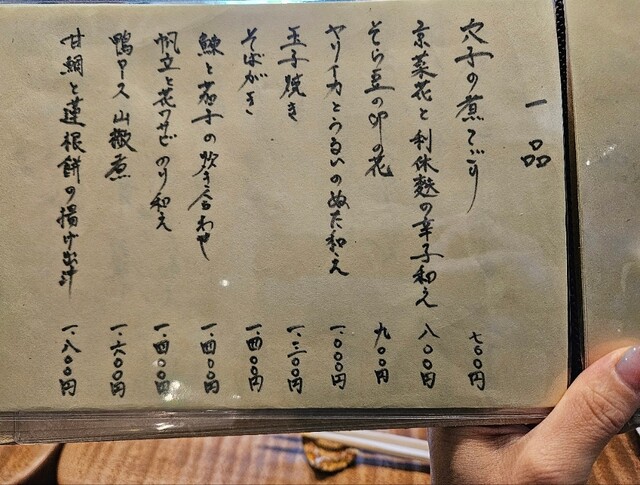 一品
穴子の煮こごり 七〇〇円
京菜花と利休麩の辛子和え 八〇〇円
そら豆の卯の花 九〇〇円
ヤリイカとうるいのぬた和え 一.〇〇〇円
玉子焼き 一.三〇〇円
そばがき 一.四〇〇円
鰊と茄子の炊き合わせ 一.四〇〇円
帆立と花ワサビのり和え 一.四〇〇円
鴨ロース山椒煮 一.六〇〇円
甘鯛と蓮根餅の揚げ出汁 一.八〇〇円